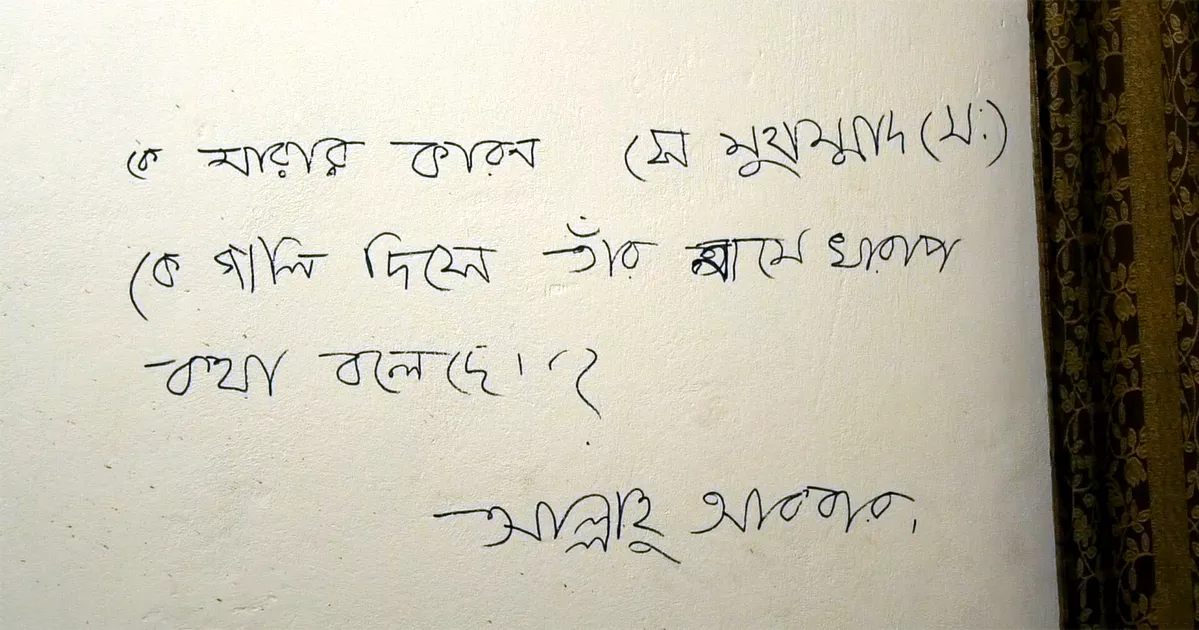 কে মারার কারন সে মুহাম্মাদ (স:)
কে গালি দিসে তাঁর নামে খারাপ
কথা বলেছে। ?
আল্লাহু আকবার,